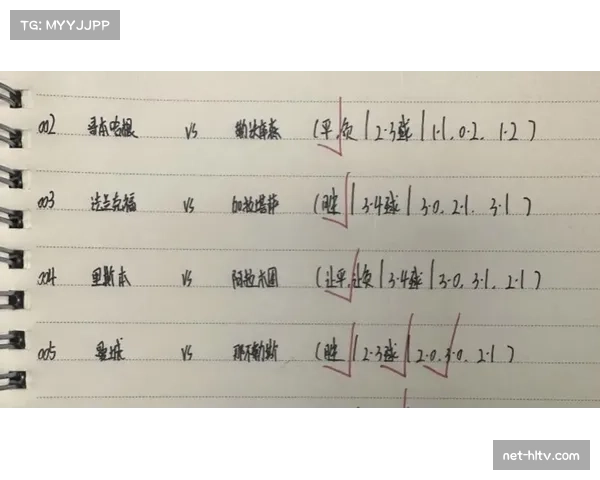 TG: MYYJJPP
002 哥本哈根 vs 勒沃库森 (平.负 | 2-3球 | 1-1, 0-2, 1-2)
003 法兰克福 vs 加拉塔萨 (胜 | 3-4球 | 3-0, 2-1, 3-1)
004 里斯本 vs 阿拉木图 (让平.让负 | 3-4球 | 3-0, 3-1, 2-1)
005 曼城 vs 那不勒斯 (胜 | 2-3球 | 2-0, 3-0, 2-1)
net-hltv.com